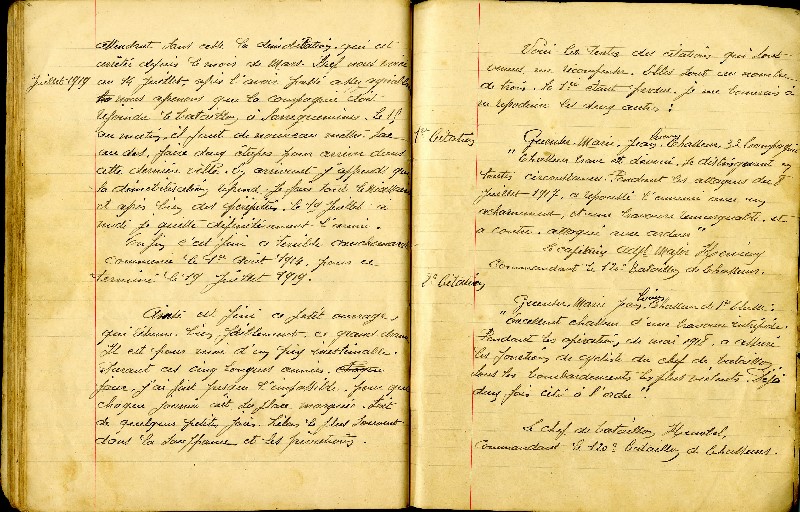 attendant sans cesse la démobilisation, qui est
arrêtée depuis le mois de Mars. Bref nous voici
Juillet 1919 au 14 Juillet, après l'avoir passé assez
nous apprenons que la compagnie doit
rejoindre le bataillon, à Sarreguemines. Le 15
au matin, il faut de nouveau mettre sac
au dos, faire deux étapes pour arriver dans
cette dernière ville. En arrivant j'apprends que
la démobilisation reprend. Je fais voir
et après bien des péripéties, le 19 Juillet à
midi je quitte définitivement l'armée.
Enfin c'est fini ce terrible cauchemar
commencé le 1er Août 1914, pour se
terminer le 19 Juillet 1919.
Ainsi est fini ce petit ouvrage,
qui bien faiblement, ce grand drame
Il est pour moi d'un prix inestimable.
Durant ces cinq longues années.
jour, j'ai fait presque l'impossible, pour que
chaque journée ait sa place marquée. Soit
de quelques petites joies. Hélas le plus souvent
dans la souffrance et les privations.
Voici les textes des citations qui sont
venues, me récompenser. Elles sont au nombre
de trois. La 1ère étant perdue, je me bornerai à
reproduire les deux autres:
1ère Citation
Marie, Jean, Chasseur 3e Compagnie
"Chasseur brave et dévoué, se distinguant en
toutes circonstances. Pendant les attaques du 8
Juillet 1917, a repoussé l'ennemi avec un
acharnement, et une bravoure remarquable, et
a contre-attaqué avec ardeur"
Le capitaine Adjt Major
Commandant le 120e Bataillon de Chasseurs.
2e Citation
Marie, Jean, Chasseur de 1ère classe:
"Excellent chasseur d'une bravoure intrépide.
Pendant les opérations, de mai 1918, a assuré
les fonctions de cycliste du chef de bataillon
sous les bombardements les plus violents. Déjà
deux fois cité à l'ordre".
Le chef de bataillon,
commandant le 120e bataillon de Chasseurs.